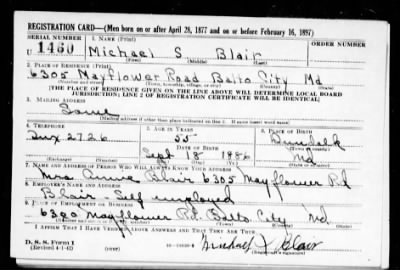 REGISTRATION CARD—(Men born on or after April 28, 1877 and on or before February 16, 1897)
SERIAL NUMBER 1. NAME (Print) ORDER NUMBER
1460 Michael S Blair
(First) (Middle) (Last)
2. PLACE OF RESIDENCE (Print)
6305 Mayflower Road Balto City Md
(Number and street) (Town, township, village, or city) (County) (State)
[THE PLACE OF RESIDENCE GIVEN ON THE LINE ABOVE WILL DETERMINE LOCAL BOARD
JURISDICTION; LINE 2 OF REGISTRATION CERTIFICATE WILL BE IDENTICAL]
3. MAILING ADDRESS
Same
[Mailing address if other than place indicated on line 2. If same insert word same]
4. TELEPHONE 5. AGE IN YEARS 6. PLACE OF BIRTH
2726 55 Dundalk
DATE OF BIRTH (Town or county)
Sept 18 1886 Md
(Exchange) (Number) (Mo.) (Day) (Yr.) (State or country)
7. NAME AND ADDRESS OF PERSON WHO WILL ALWAYS KNOW YOUR ADDRESS
Mrs Annie Blair 6305 Mayflower Rd
8. EMPLOYER'S NAME AND ADDRESS
Blair - Self employed
9. PLACE OF EMPLOYMENT OR BUSINESS
6300 Mayflower Rd. Balto City Md
(Number and street or R. F. D. number) (Town) (County) (State)
I AFFIRM THAT I HAVE VERIFIED ABOVE ANSWERS AND THAT THEY ARE TRUE.
D. S. S. Form 1
(Revised 4-1-42) Michael S Blair
(Registrant's signature)